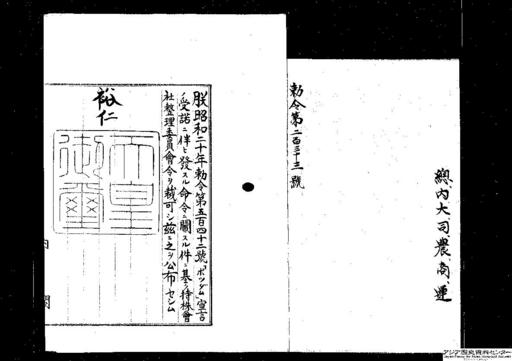 總、內、大、司、農、商、運
勅令第二百三十三號
朕昭和二十年勅令第五百四十二號「ポツダム」宣言
ノ受諾ニ伴ヒ發スル命令ニ關スル件ニ基ク持株會
社整理委員會令ヲ裁可シ茲ニ之ヲ公布セシム
裕仁
天皇
御璽
內閣
アジア歴史資料センター